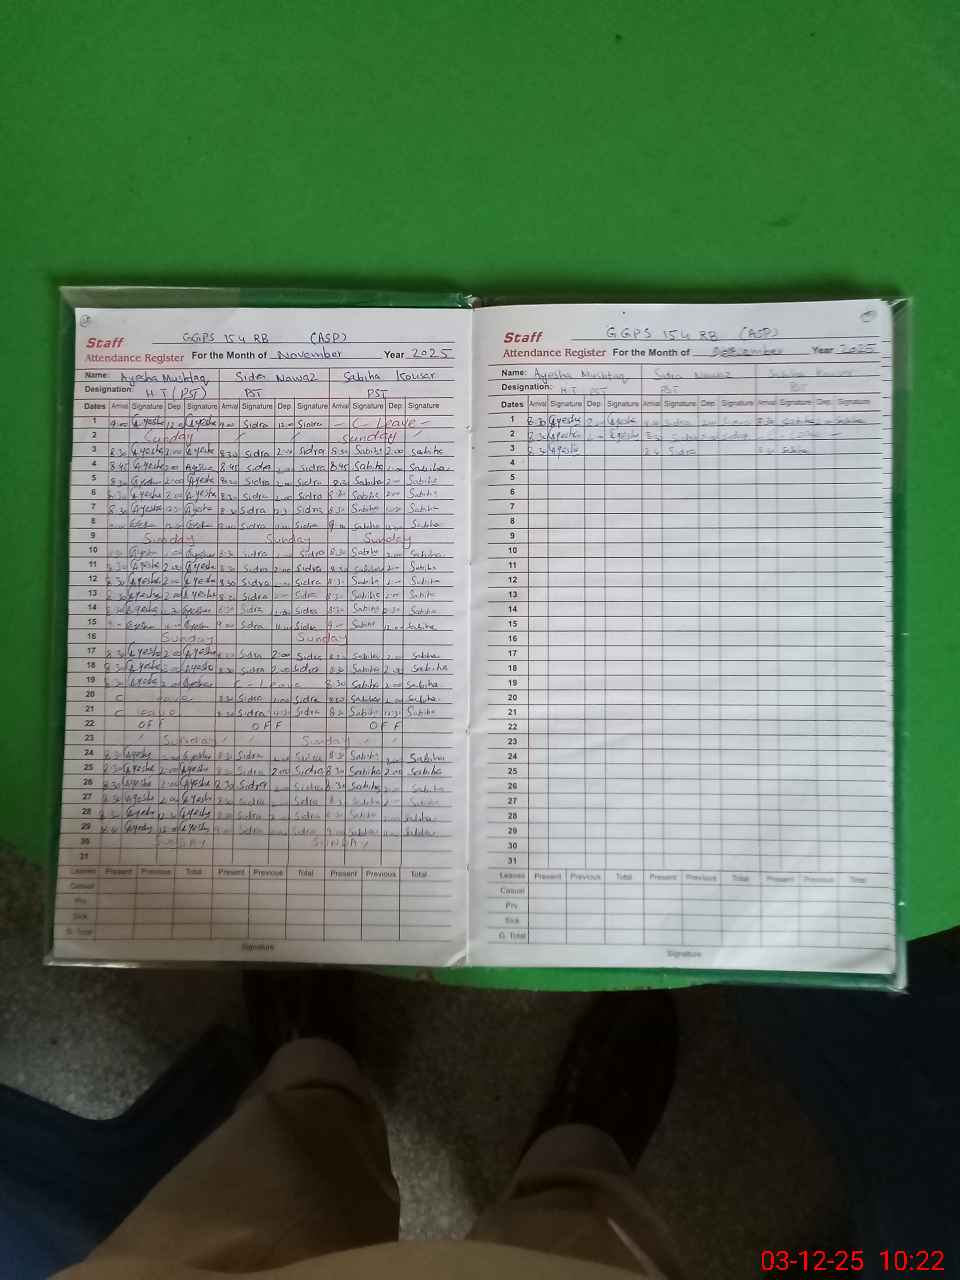 GGPS 154 RB (ASD)
Staff
Attendance Register For the Month of November Year 2025
Name: Ayesha Mushtaq Sidra Nawaz Sabiha Kousar
Designation: H.T (PST) PST PST
Dates Arrival Signature Dep. Signature Arrival Signature Dep. Signature Arrival Signature Dep. Signature
1 9:00 Ayesha 12:00 Ayesha 9:00 Sidra 12:00 Sidra - C - Leave -
2 Sunday Sunday
3 8:30 Ayesha 2:00 Ayesha 8:30 Sidra 2:00 Sidra 8:30 Sabiha 2:00 Sabiha
4 8:45 Ayesha 2:00 Ayesha 8:45 Sidra Sidra 8:45 Sabiha Sabiha
5 8:30 Ayesha 2:00 Ayesha 8:30 Sidra 2:00 Sidra 8:30 Sabiha 2:00 Sabiha
6 8:30 Ayesha 2:00 Ayesha 8:30 Sidra 2:00 Sidra 8:30 Sabiha 2:00 Sabiha
7 8:30 Ayesha Ayesha 8:30 Sidra Sidra 8:30 Sabiha Sabiha
8 Ayesha Ayesha Sidra Sidra 9:00 Sabiha Sabiha
9 Sunday Sunday Sunday
10 Ayesha Ayesha 8:30 Sidra Sidra 8:30 Sabiha 2:00 Sabiha
11 8:30 Ayesha 2:00 Ayesha 8:30 Sidra 2:00 Sidra 8:30 Sabiha 2:00 Sabiha
12 8:30 Ayesha 2:00 Ayesha 8:30 Sidra 2:00 Sidra 8:30 Sabiha 2:00 Sabiha
13 8:30 Ayesha 2:00 Ayesha 8:30 Sidra 2:00 Sidra 8:30 Sabiha 2:00 Sabiha
14 8:30 Ayesha Ayesha 8:30 Sidra Sidra 8:30 Sabiha Sabiha
15 9:00 Ayesha Ayesha 9:00 Sidra Sidra 9:00 Sabiha 12:00 Sabiha
16 Sunday Sunday
17 8:30 Ayesha 2:00 Ayesha 8:30 Sidra 2:00 Sidra 8:30 Sabiha 2:00 Sabiha
18 8:30 Ayesha 2:00 Ayesha 8:30 Sidra 2:00 Sidra 8:30 Sabiha 2:00 Sabiha
19 8:30 Ayesha 2:00 Ayesha C - Leave 8:30 Sabiha 2:00 Sabiha
20 C leave 8:30 Sidra 2:00 Sidra 8:30 Sabiha 2:00 Sabiha
21 C leave 8:30 Sidra 12:30 Sidra 8:30 Sabiha 12:30 Sabiha
22 OFF OFF OFF
23 Sunday Sunday
24 8:30 Ayesha Ayesha 8:30 Sidra Sidra 8:30 Sabiha Sabiha
25 8:30 Ayesha 2:00 Ayesha 8:30 Sidra 2:00 Sidra 8:30 Sabiha 2:00 Sabiha
26 8:30 Ayesha 2:00 Ayesha 8:30 Sidra Sidra 8:30 Sabiha Sabiha
27 8:30 Ayesha 2:00 Ayesha 8:30 Sidra Sidra Sabiha Sabiha
28 8:30 Ayesha 12:30 Ayesha Sidra Sidra 8:30 Sabiha Sabiha
29 Ayesha 12:00 Ayesha 9:00 Sidra Sidra 9:00 Sabiha Sabiha
30 SUNDAY SUNDAY
31
Leaves Present Previous Total Present Previous Total Present Previous Total
Casual
Prv
Sick
G. Total
Signature
GGPS 154 RB (ASD)
Staff
Attendance Register For the Month of December Year 2025
Name: Ayesha Mushtaq Sidra Nawaz Sabiha Kousar
Designation: H.T PST PST PST
Dates Arrival Signature Dep. Signature Arrival Signature Dep. Signature Arrival Signature Dep. Signature
1 8:30 Ayesha 2:00 Ayesha Sidra 2:00 Sidra 8:30 Sabiha Sabiha
2 8:30 Ayesha Ayesha 8:30 Sidra Sidra
3 8:30 Ayesha Sidra Sabiha
4
5
6
7
8
9
10
11
12
13
14
15
16
17
18
19
20
21
22
23
24
25
26
27
28
29
30
31
Leaves Present Previous Total Present Previous Total Present Previous Total
Casual
Prv
Sick
G. Total
Signature
03-12-25 10:22